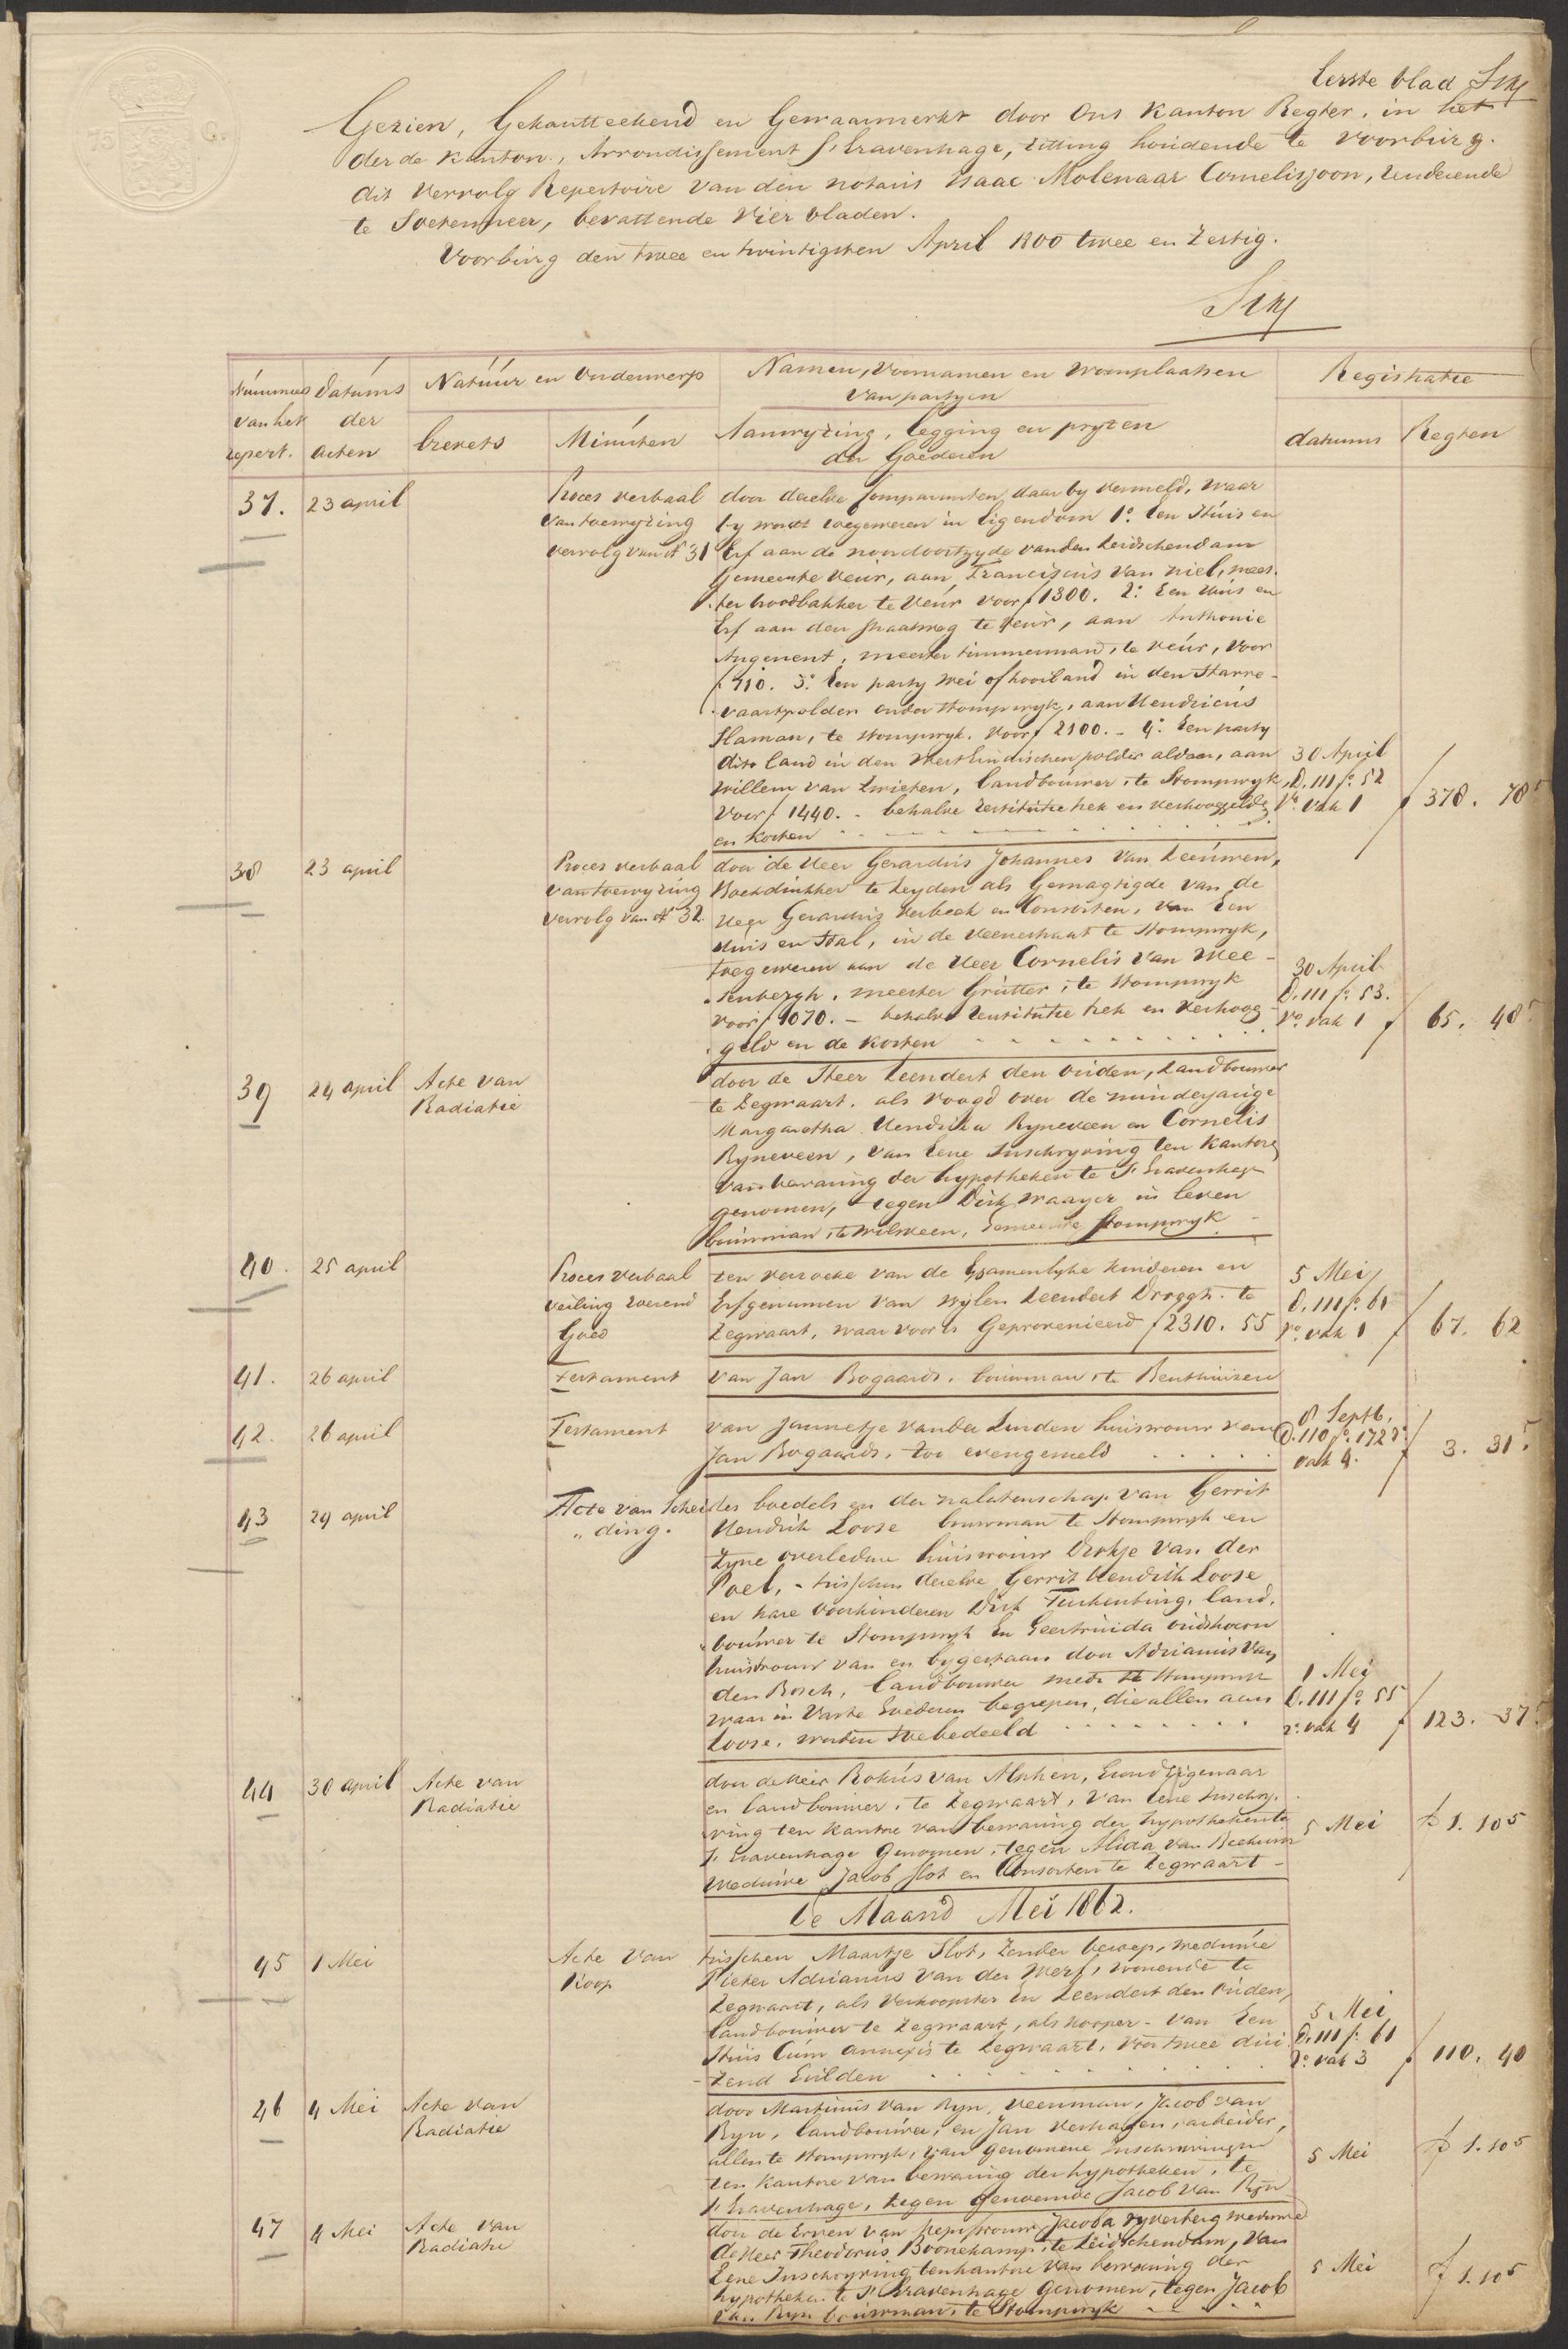 Eerste blad
Gezien, Gekantteekend en Gewaarmerkt door Ons Kanton Regter, in het
derde Kanton, Arrondissement 's Gravenhage, zitting houdende te Voorburg.
dit vervolg Repertoire van den notaris Isaac Molenaar Corneliszoon, residerende
te Soetermeer, bevattende Vier bladen.
Voorburg den twee en twintigsten April 1800 twee en Zestig.
Nummers van het repert.
datums der acten
Natuur en Onderwerp
brevets
Minuten
Namen, Voornamen en Woonplaatsen
van partyen
Aanwyzing, legging en pryzen
der Goederen
Registratie
datums
Regten
37. 23 april
Proces verbaal
van toewyzing
vervolg van N 31
door dezelve Comparanten, daar by vermeld, waar
by wordt toegewezen in Eigendom 1o. Een Huis en
Erf aan de noordoostzyde van den Leidschendam
Gemeente Veur, aan Franciscus van Niel, mees-
ter broodbakker te Veur voor f 1300. 2o. Een Huis en
Erf aan den straatweg te Veur, aan Anthonie
Angenent, meester timmerman, te Veur, voor
f 710. 3o. Een party Wei of hooiland in den Starre-
vaartpolder onder Stompwyk, aan Hendricus
Haman, te Stompwyk. Voor f 2100. - 4o. Een party
dito land in den polder aldaar, aan
Willem van Zwieten, landbouwer, te Stompwyk
Voor f 1440. - behalve restitutie trek en verhooggelde
en kosten
30 April
D. 111 fo. 52
Vo. vak 1
f 378. 78 5
38 23 april
Proces verbaal
van toewyzing
vervolg van N 32.
door de Heer Gerardus Johannes van Leeuwen,
Boekdrukker te Leyden als Gemagtigde van de
Heer Gerardus Verbeek en Consorten, van Een
Huis en Stal, in de Veenestraat te Stompwyk,
toegewezen aan de Heer Cornelis van Wee-
senbergh, meester Grutter, te Stompwyk
voor f 1070. - behalve restitutie trek en Verhoog-
geld en de kosten
30 April
D. 111 fo. 53.
Vo. vak 1
f 65. 48 5
39 24 april
Acte van
Radiatie
door de Heer Leendert den Ouden, Landbouwer
te Zegwaart. als Voogd over de minderjarige
Margaretha Hendrika Ryneveen en Cornelis
Ryneveen, van Eene Inschryving ten Kantore
van bewaring der hypotheken te 's Gravenhage
genomen, tegen Dirk Waayer in leven
bouwman, te Wilsveen, Gemeente Stompwyk
40. 25 april
Proces verbaal
veiling roerend
Goed
ten verzoeke van de Gezamenlyke kinderen en
Erfgenamen van wylen Leendert Droggh. te
Zegwaart, waar voor is Geprovenieerd f 2310. 55
5 Mei
D. 111 fo. 61
ro. vak 1
f 67. 62
41. 26 april
Testament
van Jan Bogaards, bouwman, te Benthuizen
42. 26 april
Testament
van Jannetje van der Linden huisvrouw van
Jan Bogaards, zoo evengemeld
8 Septb.
D. 110 fo. 172 ro
vak 4.
f 3. 31 5
43 29 april
Acte van Schei
" ding.
des boedels en der nalatenschap van Gerrit
Hendrik Loose bouwman te Stompwyk en
Zyne overledene huisvrouw Dirkje van der
Poel, - tusschen dezelve Gerrit Hendrik Loose
en hare voorkinderen Dirk Turkenburg, land-
bouwer te Stompwyk En Geertruida Oudshoorn
huisvrouw van en bygestaan door Adrianus van
den Bosch, landbouwer mede te Stompwyk
waar in Vaste Goederen begrepen, die allen aan
Loose, worden toebedeeld
1 Mei
D. 111 fo. 55
ro. vak 4
f 123. 37 5
44 30 april
Acte van
Radiatie
door de Heer Rokus van Alphen, Grondeigenaar
en landbouwer, te Zegwaart, van Eene Inschry-
ving ten Kantore van bewaring der hypotheken te
's Gravenhage Genomen, tegen Alida van Beekum
Weduwe Jacob Slot en Consorten te Zegwaart -
5 Mei
f 1. 10 5
De Maand Mei 1862.
45 1 Mei
Acte van
Koop
tusschen Maartje Slot, Zonder beroep, weduwe
Pieter Adrianus van der Werf, wonende te
Zegwaart, als Verkoopster en Leendert den Ouden,
landbouwer te Zegwaart, als kooper - van Een
Huis Cum annexis te Zegwaart, voor twee dui-
zend Gulden
5 Mei
D. 111 fo. 61
ro. vak 3
f 110. 40
46 4 Mei
Acte van
Radiatie
door Martinus van Ryn, veenman, Jacob van
Ryn, landbouwer, en Jan Verhagen, arbeider,
allen te Stompwyk, van genomene Inschryvingen
ten Kantore van bewaring der hypotheken, te
's Gravenhage, tegen genoemde Jacob van Ryn
5 Mei
f 1. 10 5
47 4 Mei
Acte van
Radiatie
door de Erven van Mejufvrouw Jacoba Ryverberg weduwe
de Heer Theodorus Boonekamp, te Leidschendam, van
Eene Inschryving ten kantore van bewaring der
hypotheken te 's Gravenhage Genomen, tegen Jacob
van Ryn bouwman, te Stompwyk
5 Mei
f 1. 10 5